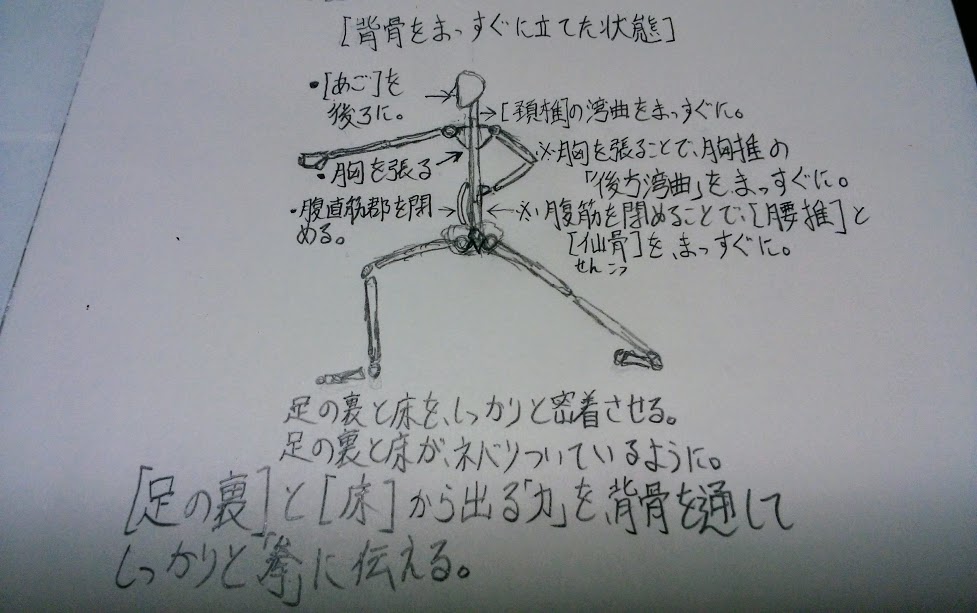 [背骨をまっすぐに立てた状態]
・[あご]を
後ろに。
→[頚椎]の湾曲をまっすぐに。
・胸を張る
※胸を張ることで、胸椎の
「後方湾曲」をまっすぐに。
・腹直筋郡を閉
める。
※腹筋を閉めることで、[腰椎]と
[仙骨]を、まっすぐに。
せんこつ
足の裏と床を、しっかりと密着させる。
足の裏と床が、ネバりついているように。
[足の裏]と[床]から出る「力」を、背骨を通して
しっかりと「拳」に伝える。